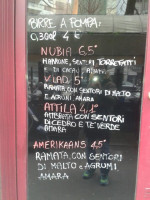 BIRRE A POMPA:
0,30cl 4€
NUBIA 6.5°
MARRONE, SENTORI TORREFATTI
E DI CACAO, AMARA
VIAD 5°
RAMATA CON SENTORI DI MALTO
E AGRUMI AMARA
ATTILA 4.1°
AMBRATA CON SENTORI
DI CEDRO E TE' VERDE
AMARA
AMERIKAANS 4.5°
RAMATA, CON SENTORI
DI MALTO E AGRUMI
AMARA